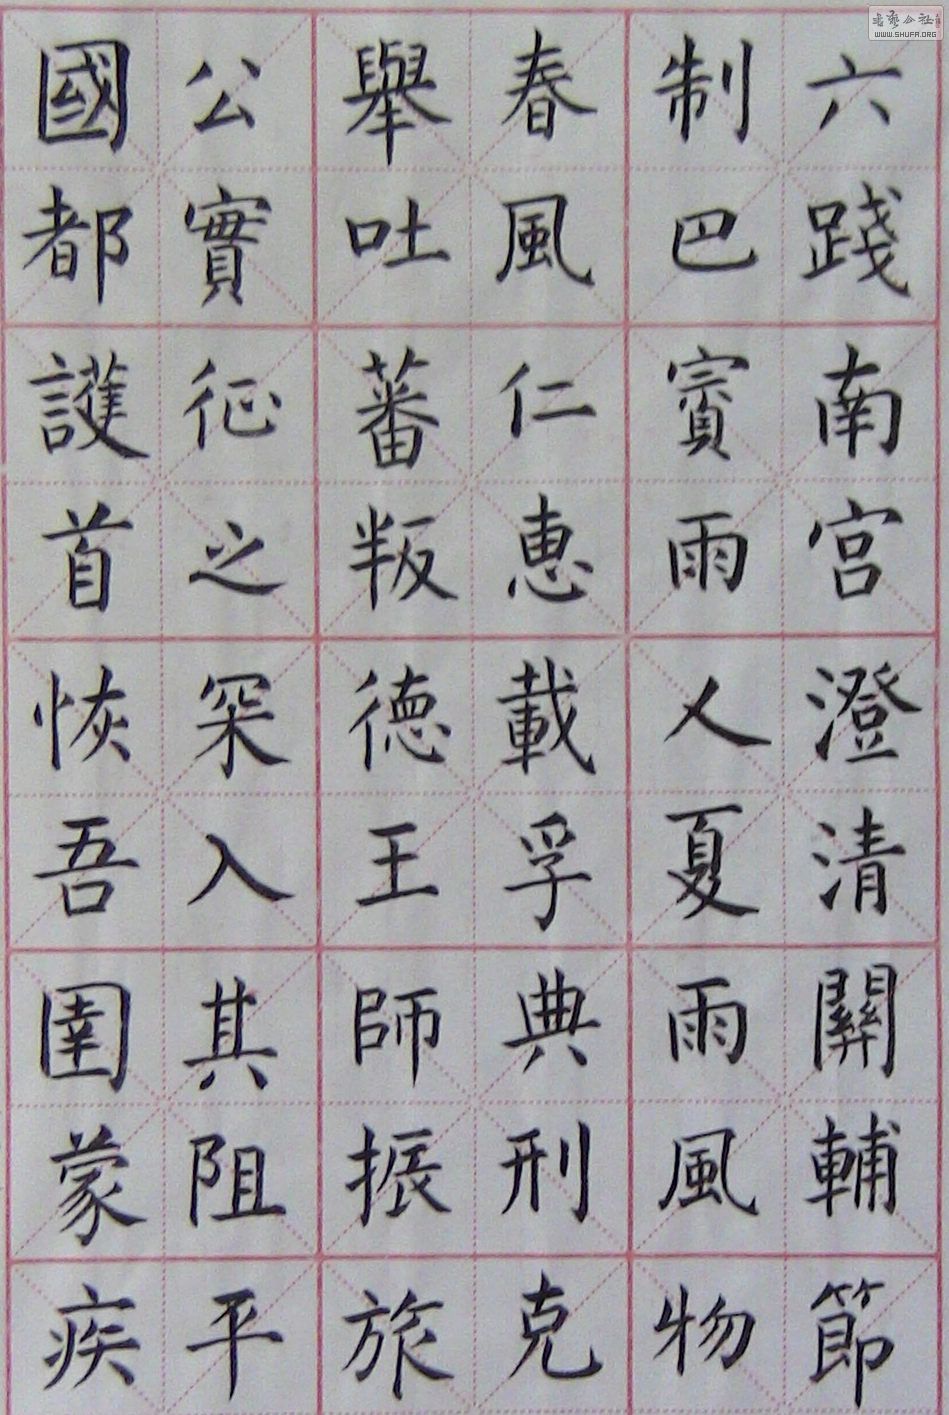 六踐南宮澄清關輔節
制巴賓雨人夏雨風物
春風仁惠載孚典刑克
舉吐蕃叛德王師振旅
公實征之罙入其阻平
國都護首恢吾圉蒙疾
WWW.SHUFA.ORG